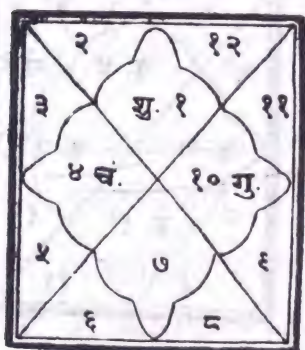 २ १२
३ शु. १ ११
४ चं. १० गु.
५ ७ ९
६ ८